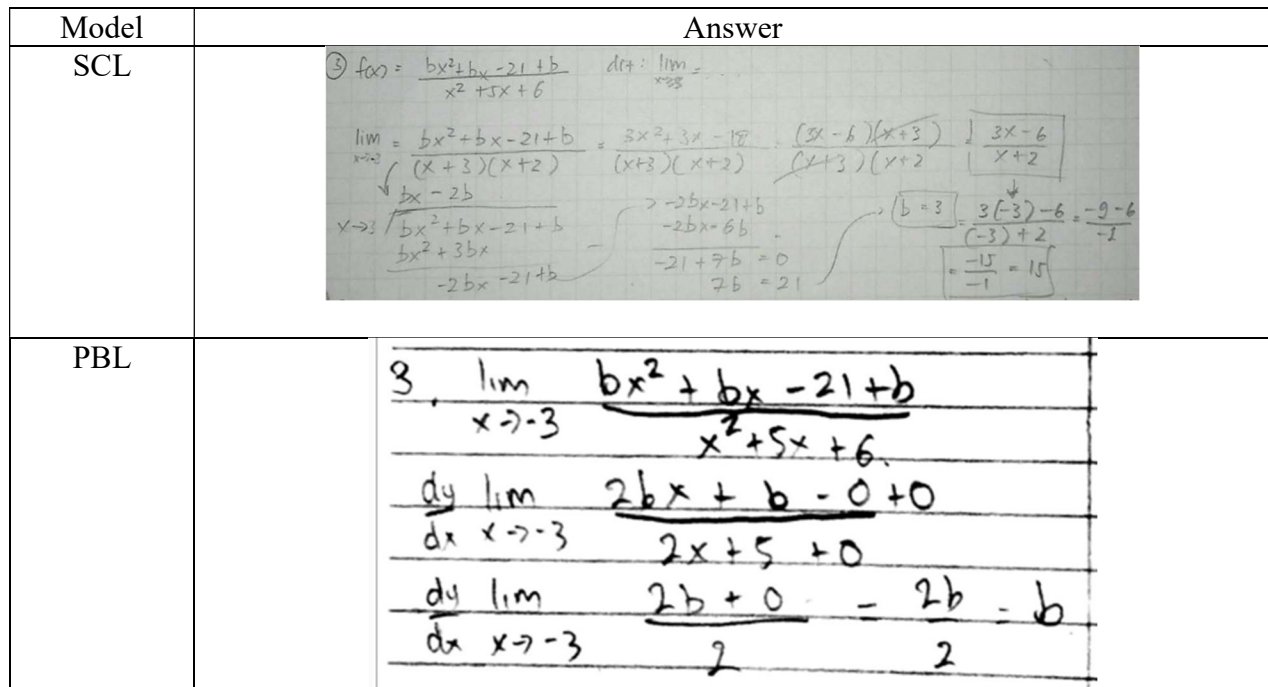 Model Answer
SCL
③ f(x) = bx²+bx-21+b / x²+5x+6 dit: lim x→-3 = ...
lim x→-3 = bx²+bx-21+b / (x+3)(x+2) = 3x²+3x-18 / (x+3)(x+2) = (3x-6)(x+3) / (x+3)(x+2) = 3x-6 / x+2
bx - 2b
x→3 / bx²+bx-21+b
bx²+3bx
-2bx-21+b
-2bx-21+b
-2bx-6b
-21+7b = 0
7b = 21
b = 3
= 3(-3)-6 / (-3)+2 = -9-6 / -1
= -15 / -1 = 15
PBL
3. lim x→-3 bx² + bx - 21 + b / x² + 5x + 6.
dy/dx lim x→-3 2bx + b - 0 + 0 / 2x + 5 + 0
dy/dx lim x→-3 2b + 0 / 2 = 2b / 2 = b